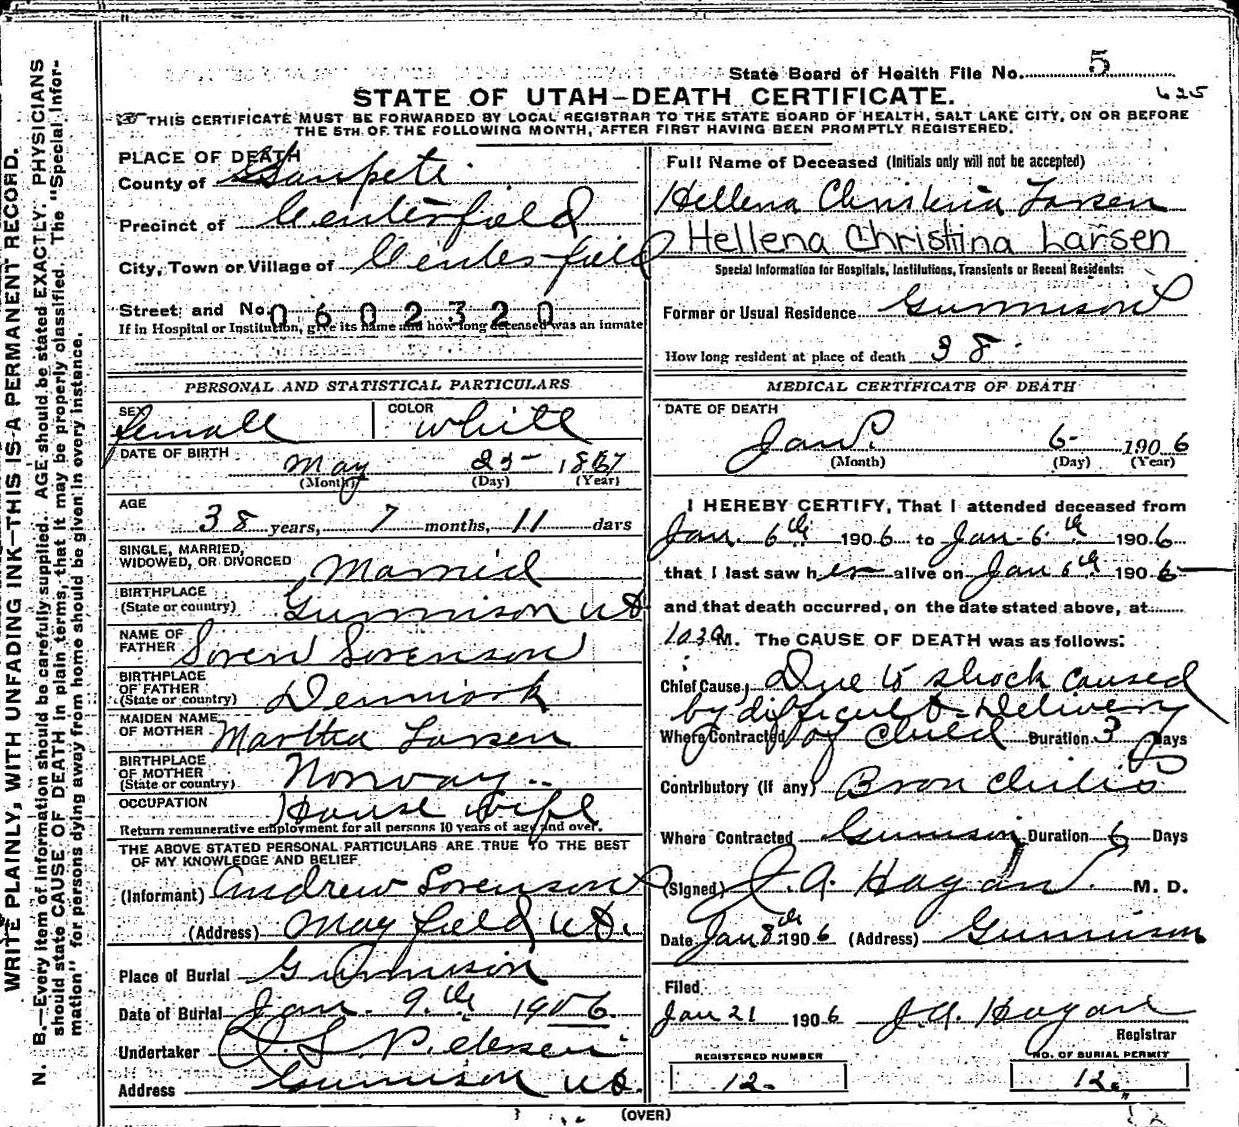 State Board of Health File No. 5
625
STATE OF UTAH—DEATH CERTIFICATE.
THIS CERTIFICATE MUST BE FORWARDED BY LOCAL REGISTRAR TO THE STATE BOARD OF HEALTH, SALT LAKE CITY, ON OR BEFORE
THE 5TH OF THE FOLLOWING MONTH, AFTER FIRST HAVING BEEN PROMPTLY REGISTERED.
WRITE PLAINLY, WITH UNFADING INK—THIS IS A PERMANENT RECORD.
N. B.—Every item of information should be carefully supplied. AGE should be stated EXACTLY. PHYSICIANS
should state CAUSE OF DEATH in plain terms, that it may be properly classified. The "Special Infor-
mation" for persons dying away from home should be given in every instance.
PLACE OF DEATH
County of Sanpete
Precinct of Centerfield
City, Town or Village of Centerfield
Street and No. 0602320
If in Hospital or Institution, give its name and how long deceased was an inmate
PERSONAL AND STATISTICAL PARTICULARS
SEX femall COLOR White
DATE OF BIRTH May 25 1867
(Month) (Day) (Year)
AGE
38 years, 7 months, 11 days
SINGLE, MARRIED,
WIDOWED, OR DIVORCED Married
BIRTHPLACE
(State or country) Gunnison Ut
NAME OF
FATHER Soren Sorenson
BIRTHPLACE
OF FATHER
(State or country) Denmark
MAIDEN NAME
OF MOTHER Martha Larsen
BIRTHPLACE
OF MOTHER
(State or country) Norway
OCCUPATION House wife
Return remunerative employment for all persons 10 years of age and over.
THE ABOVE STATED PERSONAL PARTICULARS ARE TRUE TO THE BEST
OF MY KNOWLEDGE AND BELIEF
(Informant) Andrew Sorenson
(Address) Mayfield Ut.
Place of Burial Gunnison
Date of Burial Jan. 9th 1906
Undertaker Pedersen
Address Gunnison Ut.
Full Name of Deceased (Initials only will not be accepted)
Hellena Christina Larsen
Hellena Christina Larsen
Special Information for Hospitals, Institutions, Transients or Recent Residents:
Former or Usual Residence Gunnison
How long resident at place of death 38
MEDICAL CERTIFICATE OF DEATH
DATE OF DEATH
Jan. 6 1906
(Month) (Day) (Year)
I HEREBY CERTIFY, That I attended deceased from
Jan. 6th 1906 to Jan. 6th 1906
that I last saw her alive on Jan 6th 1906
and that death occurred, on the date stated above, at
M. The CAUSE OF DEATH was as follows:
Chief Cause, Due to shock caused
by difficult Delivery
Where Contracted of child Duration 3 Days
Contributory (if any) Bronchitis
Where Contracted Gunnison Duration 6 Days
(Signed) J. A. Hagan M. D.
Date Jan 8th 1906 (Address) Gunnison
Filed
Jan 21 1906 J. A. Hagan
Registrar
REGISTERED NUMBER
12
NO. OF BURIAL PERMIT
12
(OVER)